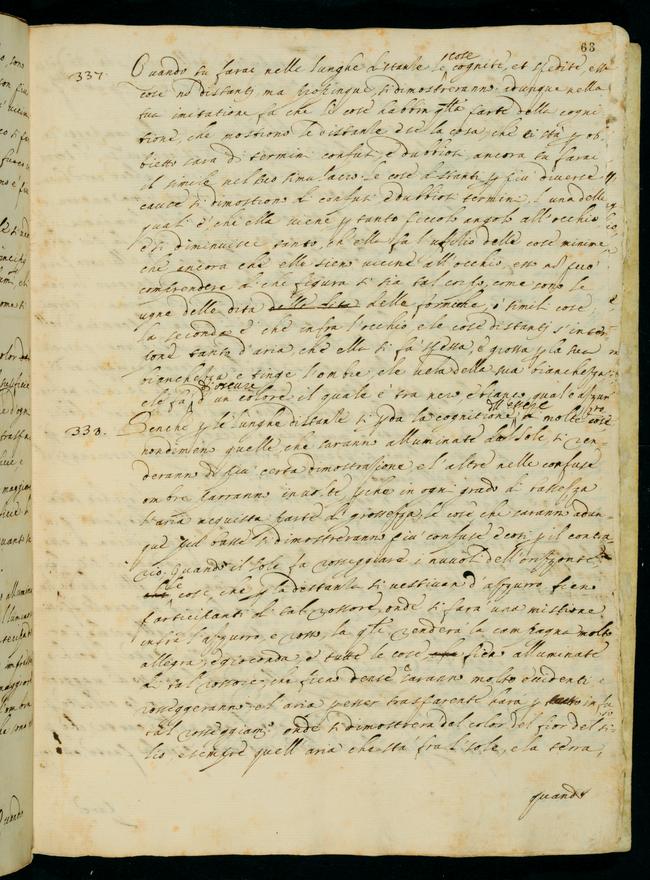 63
337. Quando tu farai nelle lunghe distantie le cose cognite, et spedite, elle
cose nō distanti, ma propinque, si dimostreranno, adunque nella
tua imitatione fa che le cose habbin q.lla parte della cogni
tione, che mostrono le distantie e se la cosa, che ti stà p ob
bietto sara di termini confusi, e dubbiosi ancora tu farai
il simile nel tuo simulacro le cose distanti p piu diverse
cause si dimostron di confusi e dubbiosi termini, l'una delle
quali è, che ella viene p tanto piccolo angolo all'occhio
e si diminuisce tanto, ch'ella fa l'ufitio delle cose minime
che ancora che elle sieno vicine all'occhio, esso nō può
comprendere di che figura si sia tal corpo, come sono le
ugne delle dita delle formiche, i simili cose,
la seconda è che infra l'occhio, e le cose distanti s'inter
pone tanto d'aria, che ella si fa spessa, e grossa p la sua
bianchezza e tinge l'ombre, e le vela della sua bianchezza
e le fà d'oscure d'un colore il quale è tra nero e bianco, qual è azur
ro
338. Benche p le lunghe distantie si pda la cognitione dell'essere di molte cose
nondimeno quelle che saranno alluminate dal Sole, si ren
deranno di piu certa dimostratione e l'altre nelle confuse
ombre parranno involte, pche in ogni grado di bassezza
l'aria acquista parte di grossezza, le cose che saranno adun
que piu basse si dimostreranno piu confuse, e così p il contra
rio. Quando il Sole fa rosseggiare i nuvoli dell'orizzonte, le
cose, che p la distantia si vestivan d'azurro fieno
participanti di tal rossore, onde si farà una mistione
infra l'azurro, e rosso, la q.le renderà la campagna molto
allegra, e gioconda, e tutte le cose che fieno alluminate
di tal rossore, che fien dense saranno molto evidenti e
rosseggeranno, e l'aria p esser trasparente hara p tutto infu
so tal rosseggiam.to onde si dimostrerà del color del fior del gi
lio e sempre quell'aria che sta fra 'l sole, e la terra,
quando